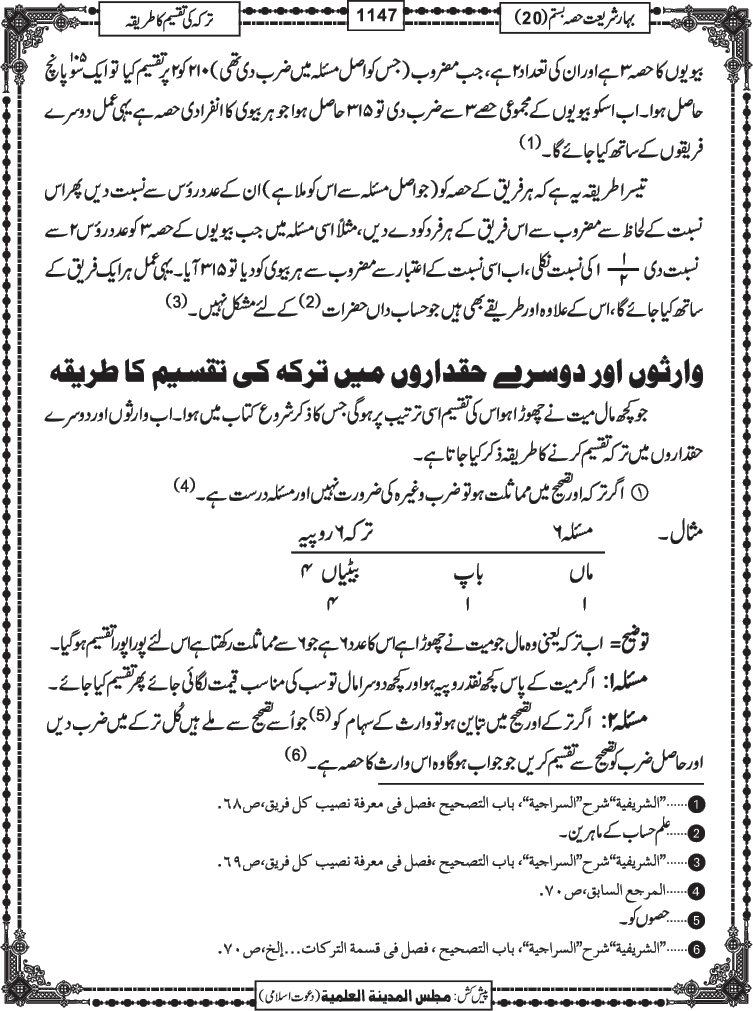 بہار شریعت حصہ بستم (20)
1147
ترکہ کی تقسیم کا طریقہ
بیویوں کا حصہ ۳ ہے اور ان کی تعداد ۲ ہے، جب مضروب (جس کو اصل مسئلہ میں ضرب دی تھی) ۲۱۰ کو ۲ پر تقسیم کیا تو ایک سو پانچ ۱۰۵
حاصل ہوا۔ اب اسکو بیویوں کے مجموعی حصے ۳ سے ضرب دی تو ۳۱۵ حاصل ہوا جو ہر بیوی کا انفرادی حصہ ہے یہی عمل دوسرے
فریقوں کے ساتھ کیا جائے گا۔ (1)
تیسرا طریقہ یہ ہے کہ ہر فریق کے حصہ کو (جو اصل مسئلہ سے اس کو ملا ہے) ان کے عدد رؤس سے نسبت دیں پھر اس
نسبت کے لحاظ سے مضروب سے اس فریق کے ہر فرد کو دے دیں، مثلاً اسی مسئلہ میں جب بیویوں کے حصہ ۳ کو عدد رؤس ۲ سے
نسبت دی ۱/۲ ۱ کی نسبت نکلی، اب اسی نسبت کے اعتبار سے مضروب سے ہر بیوی کو دیا تو ۳۱۵ آیا۔ یہی عمل ہر ایک فریق کے
ساتھ کیا جائے گا، اس کے علاوہ اور طریقے بھی ہیں جو حساب داں حضرات (2) کے لئے مشکل نہیں۔ (3)
وارثوں اور دوسرے حقداروں میں ترکہ کی تقسیم کا طریقہ
جو کچھ مال میت نے چھوڑا ہو اس کی تقسیم اسی ترتیب پر ہوگی جس کا ذکر شروع کتاب میں ہوا۔ اب وارثوں اور دوسرے
حقداروں میں ترکہ تقسیم کرنے کا طریقہ ذکر کیا جاتا ہے۔
① اگر ترکہ اور تصحیح میں مماثلت ہو تو ضرب وغیرہ کی ضرورت نہیں اور مسئلہ درست ہے۔ (4)
مثال۔ مسئلہ ۶ ترکہ ۶ روپیہ
ماں باپ بیٹیاں ۴
۱ ۱ ۴
توضیح= اب ترکہ یعنی وہ مال جو میت نے چھوڑا ہے اس کا عدد ۶ ہے جو ۶ سے مماثلت رکھتا ہے اس لئے پورا پورا تقسیم ہوگیا۔
مسئلہ ۱: اگر میت کے پاس کچھ نقد روپیہ ہو اور کچھ دوسرا مال تو سب کی مناسب قیمت لگائی جائے پھر تقسیم کیا جائے۔
مسئلہ ۲: اگر ترکے اور تصحیح میں تباین ہو تو وارث کے سہام کو (5) جو اُسے تصحیح سے ملے ہیں کُل ترکے میں ضرب دیں
اور حاصل ضرب کو تصحیح سے تقسیم کریں جو جواب ہوگا وہ اس وارث کا حصہ ہے۔ (6)
1 ......”الشريفية“ شرح ”السراجية“، باب التصحيح، فصل فى معرفة نصيب كل فريق، ص٦٨.
2 ......علم حساب کے ماہرین۔
3 ......”الشريفية“ شرح ”السراجية“، باب التصحيح، فصل فى معرفة نصيب كل فريق، ص٦٩.
4 ......المرجع السابق، ص٧٠.
5 ......حصوں کو۔
6 ......”الشريفية“ شرح ”السراجية“، باب التصحيح، فصل فى قسمة التركات...إلخ، ص٧٠.
پیش کش: مجلس المدينة العلمية (دعوت اسلامی)